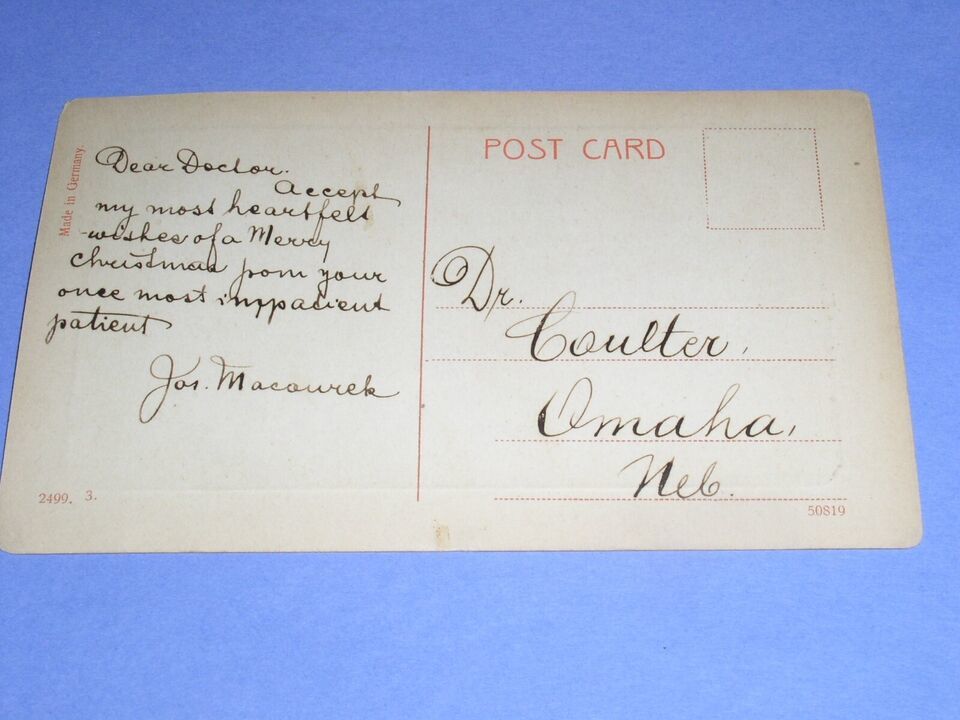 Made in Germany.
Dear Doctor.
Accept
my most heartfelt
wishes of a Merry
Christmas from your
once most imppacient
patient
Jos. Macourek
2499. 3.
POST CARD
Dr.
Coulter,
Omaha,
Neb.
50819